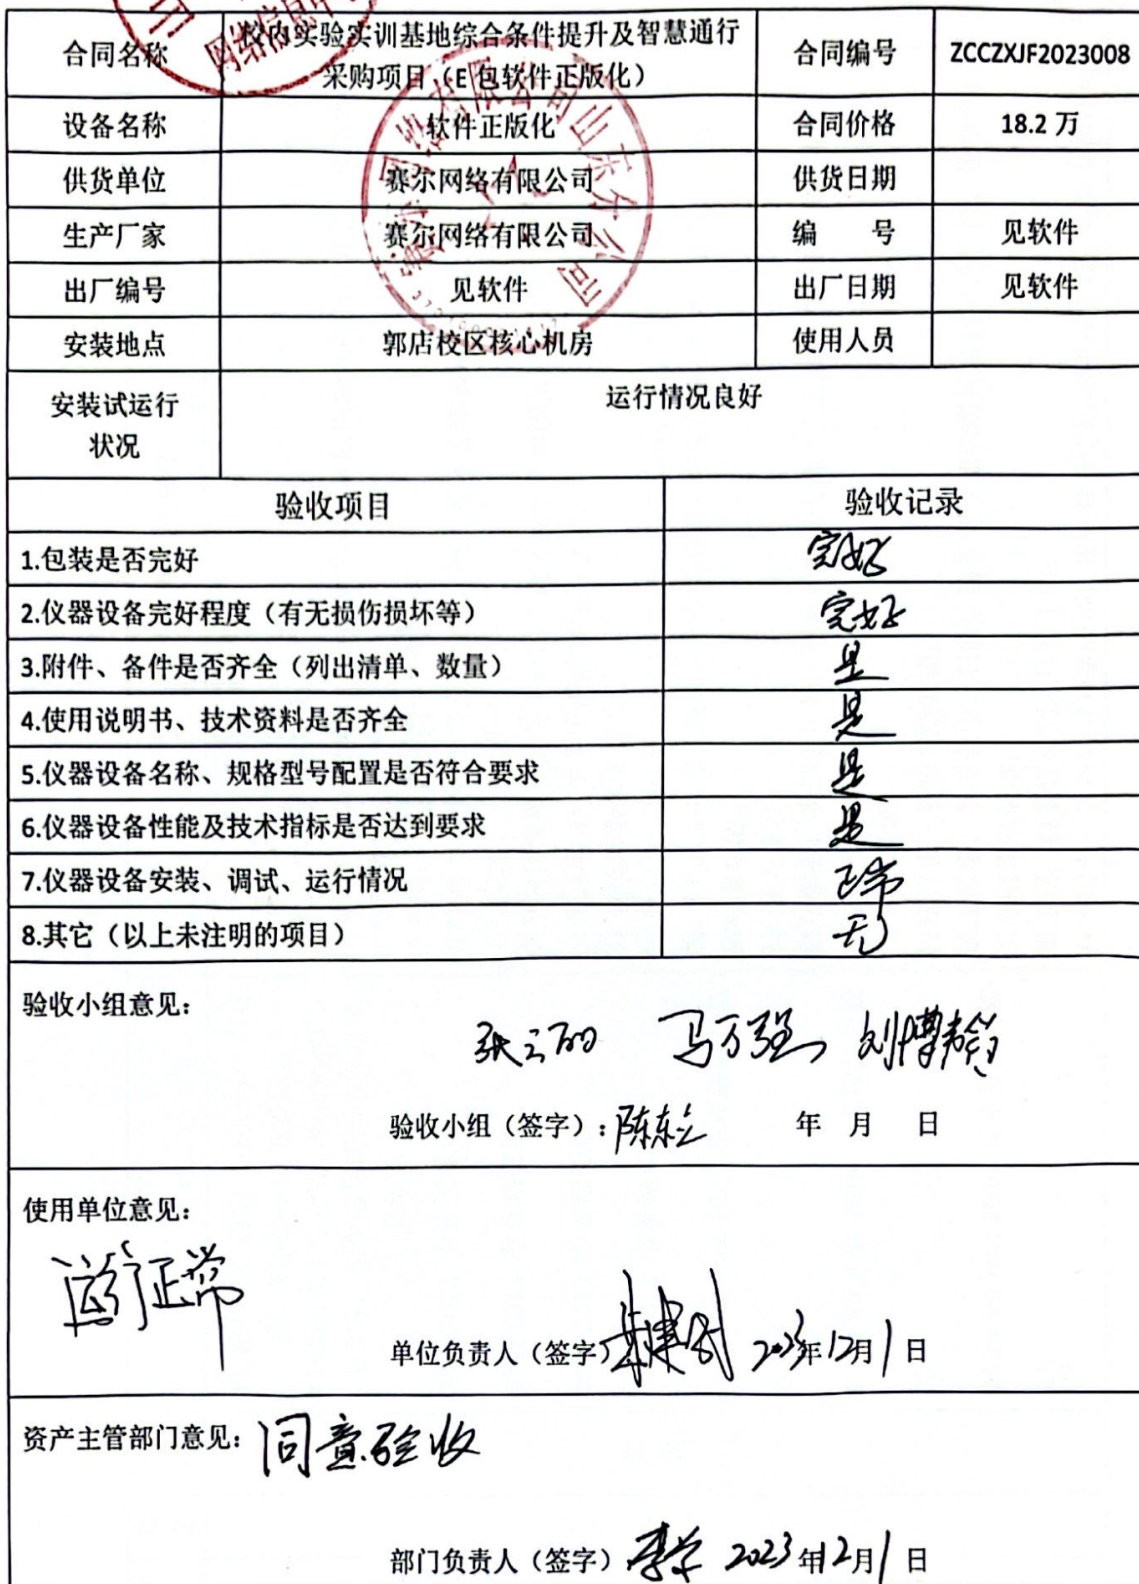 网络信息中
合同名称 校内实验实训基地综合条件提升及智慧通行 合同编号 ZCCZXJF2023008
采购项目（E包软件正版化）
设备名称 软件正版化 合同价格 18.2 万
供货单位 赛尔网络有限公司 供货日期
生产厂家 赛尔网络有限公司 编 号 见软件
出厂编号 见软件 出厂日期 见软件
安装地点 郭店校区核心机房 使用人员
赛尔网络有限公司山东分公司
安装试运行 运行情况良好
状况
验收项目 验收记录
1.包装是否完好 完好
2.仪器设备完好程度（有无损伤损坏等） 完好
3.附件、备件是否齐全（列出清单、数量） 是
4.使用说明书、技术资料是否齐全 是
5.仪器设备名称、规格型号配置是否符合要求 是
6.仪器设备性能及技术指标是否达到要求 是
7.仪器设备安装、调试、运行情况 正常
8.其它（以上未注明的项目） 无
验收小组意见：
马万强
验收小组（签字）： 年 月 日
使用单位意见：
运行正常
单位负责人（签字） 2023年12月1日
资产主管部门意见： 同意验收
部门负责人（签字） 2023年12月1日